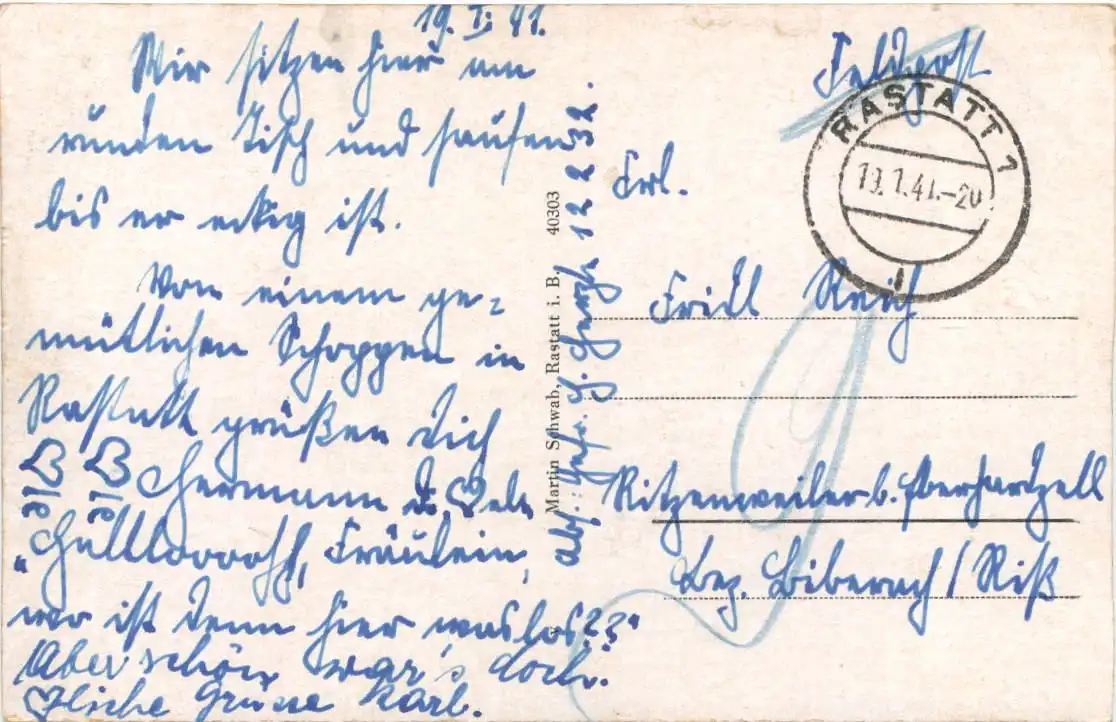 19.I.41.
Wir sitzen hier am
runden Tisch und saufen
bis er eckig ist.
Von einem ge-
mütlichen Schoppen in
Rastatt grüßen Dich
Hermann
Fräulein,
wo ist denn hier was los??"
Aber schön war's doch.
liche Grüsse Karl.
Martin Schwab, Rastatt i. B. 40303
Abs.: Gefr. H. 12232.
Feldpost
RASTATT 1
19.1.41.-20
Frl.
Friedl Reich
Ritzenweiler b. Eberhardzell
Bez. Biberach/Riß